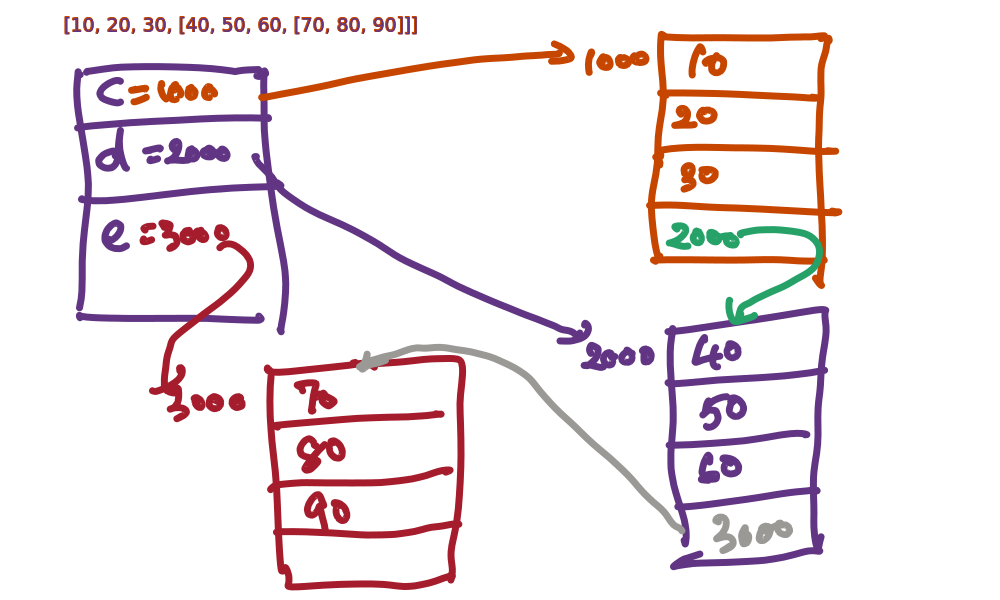 [10, 20, 30, [40, 50, 60, [70, 80, 90]]]
c = 1000
d = 2000
e = 3000
1000
10
20
30
2000
2000
40
50
60
3000
3000
70
80
90